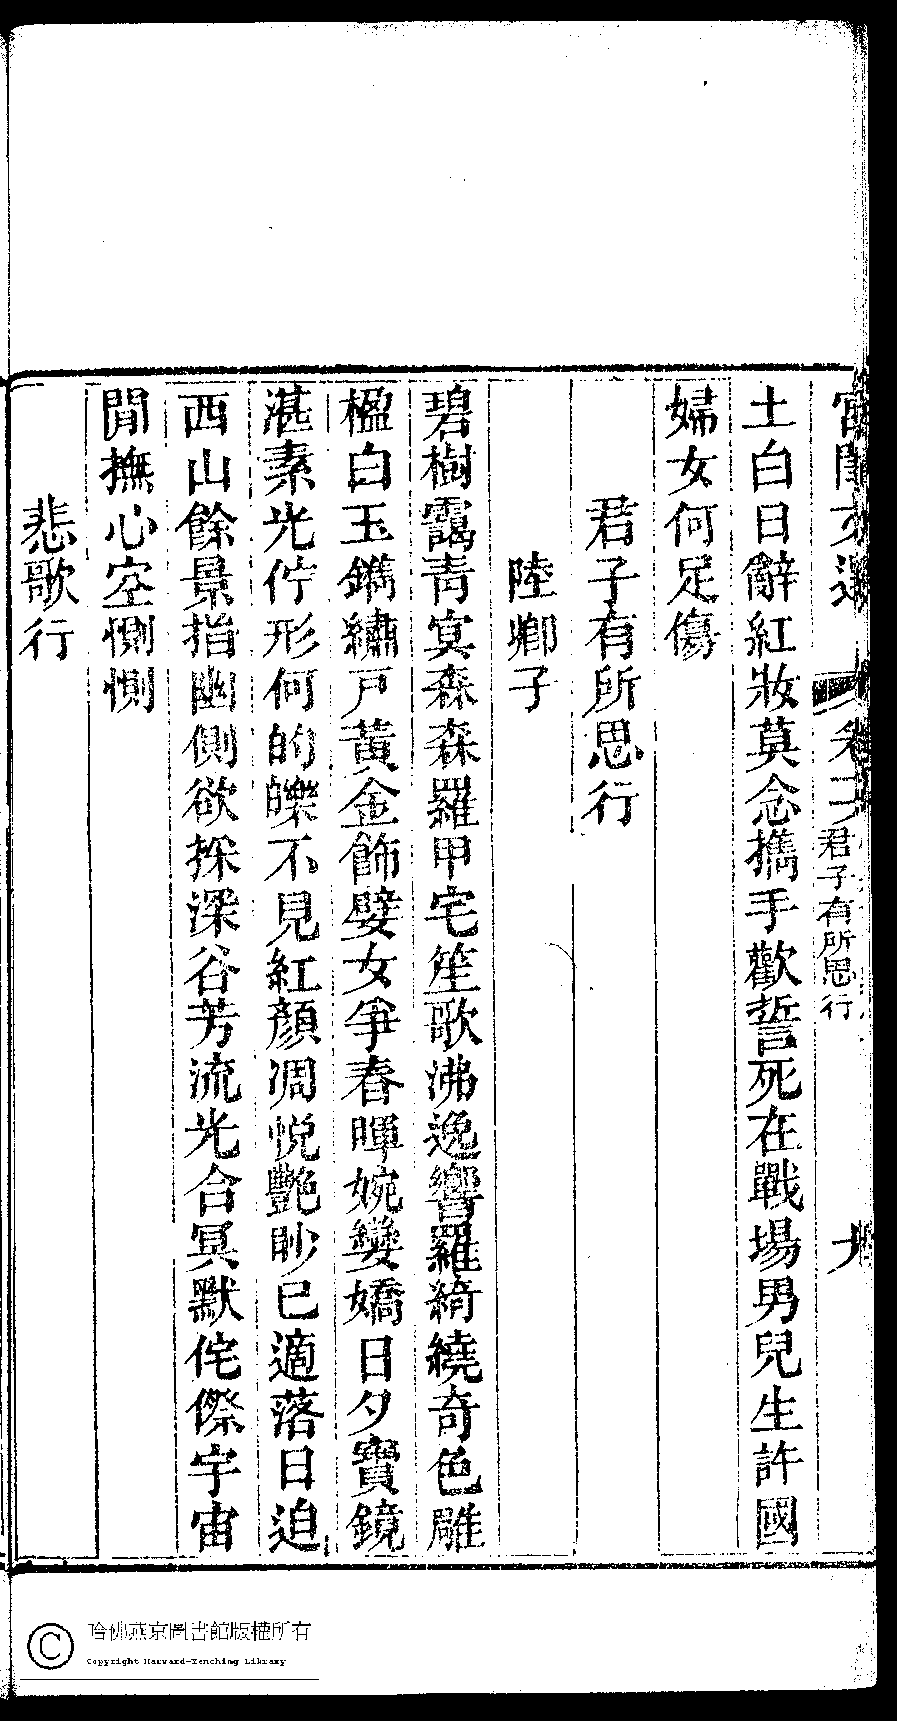 宮閨文選 卷二 君子有所思行
土白日辭紅妝莫念攜手歡誓死在戰場男兒生許國
婦女何足傷
君子有所思行
陸卿子
碧樹靄青冥森森羅甲宅笙歌沸逸響羅綺繞奇色雕
楹白玉鐫繡戸黃金飾嬖女爭春暉婉孌嬌日夕寶鏡
湛素光佇形何的皪不見紅顏凋悅艷眇已適落日迫
西山餘景指幽側欲採深谷芳流光合冥默侘傺宇宙
閒撫心空惻惻
悲歌行
哈佛燕京圖書館版權所有
Copyright Harvard-Yenching Library